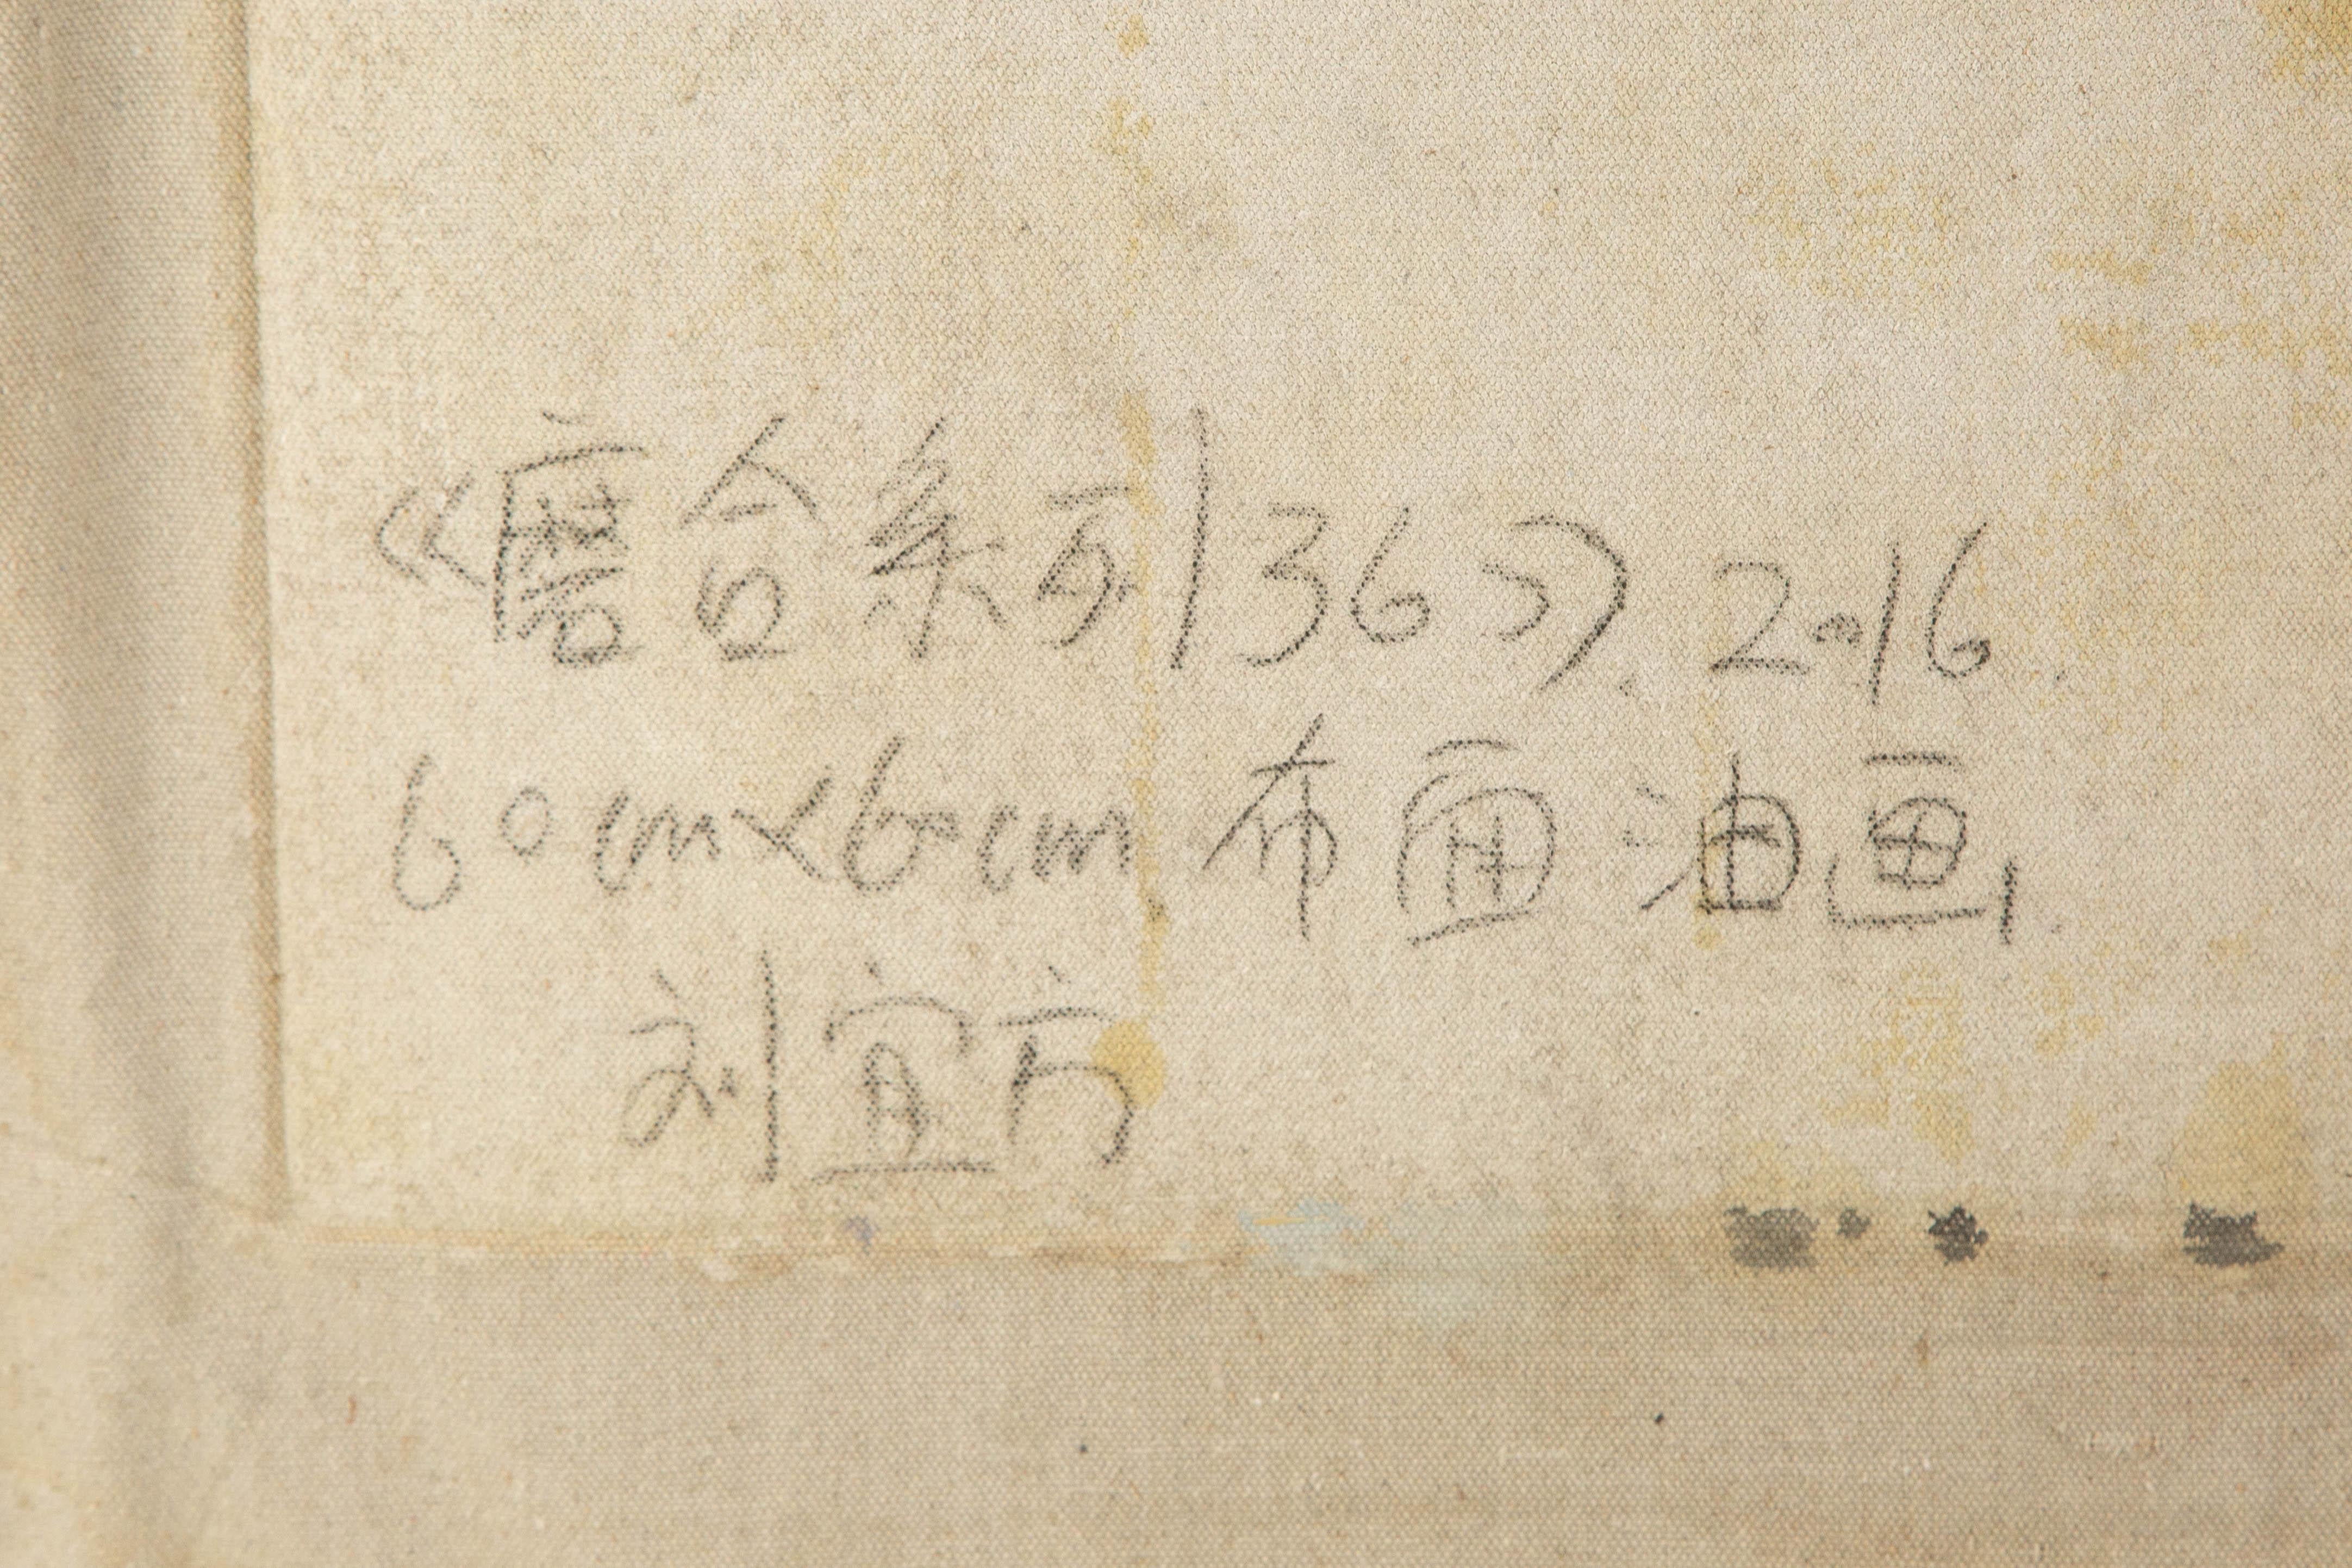 《磨合系列136》. 2016.
60cm×60cm 布面油画.
刘宜方